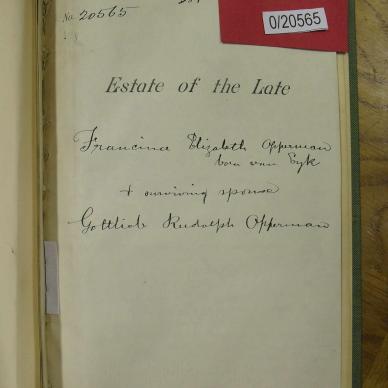 No 20565
0/20565
Estate of the Late
Francina Elizabeth Opperman
born van Eyk
+ surviving spouse
Gottlieb Rudolph Opperman